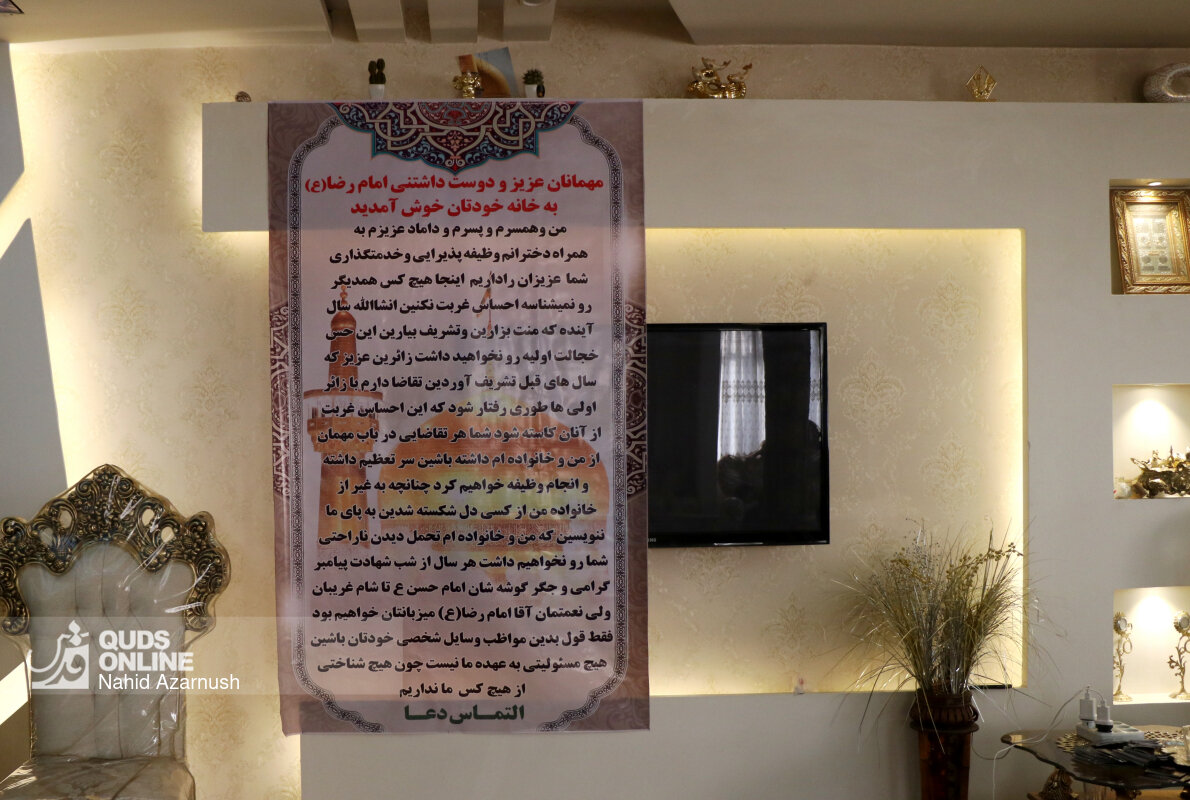 مهمانان عزیز و دوست داشتنی امام رضا(ع)
به خانه خودتان خوش آمدید
من وهمسرم و پسرم و داماد عزیزم به
همراه دخترانم وظیفه پذیرایی وخدمتگذاری
شما عزیزان راداریم اینجا هیچ کس همدیگر
رو نمیشناسه احساس غربت نکنین انشاالله سال
آینده که منت بزارین وتشریف بیارین این حس
خجالت اولیه رو نخواهید داشت زائرین عزیز که
سال های قبل تشریف آوردین تقاضا دارم با زائر
اولی ها طوری رفتار شود که این احساس غربت
از آنان کاسته شود شما هر تقاضایی در باب مهمان
از من و خانواده ام داشته باشین سر تعظیم داشته
و انجام وظیفه خواهیم کرد چنانچه به غیر از
خانواده من از کسی دل شکسته شدین به پای ما
ننویسین که من و خانواده ام تحمل دیدن ناراحتی
شما رو نخواهیم داشت هر سال از شب شهادت پیامبر
گرامی و جگر گوشه شان امام حسن ع تا شام غریبان
ولی نعمتمان آقا امام رضا(ع) میزبانتان خواهیم بود
فقط قول بدین مواظب وسایل شخصی خودتان باشین
هیچ مسئولیتی به عهده ما نیست چون هیچ شناختی
از هیچ کس ما نداریم
التماس دعا
قدس
QUDS
ONLINE
Nahid Azarnush